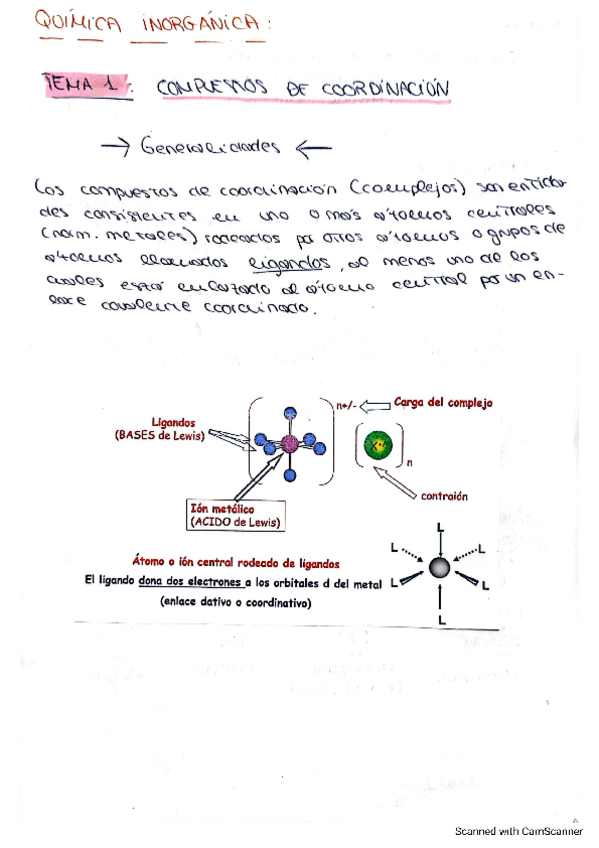 QUÍMICA INORGÁNICA:
TEMA 1: COMPLEJOS DE COORDINACIÓN
→ Generalidades ←
Los compuestos de coordinación (complejos) son entida-
des consistentes en uno o más átomos centrales
(norm. metales) rodeados por otros átomos o grupos de
átomos llamados ligandos, al menos uno de los
cuales está enlazado al átomo central por un en-
lace covalente coordinado.
n+/-
Carga del complejo
Ligandos
(BASES de Lewis)
n
contraión
Ión metálico
(ACIDO de Lewis)
L
L L
Átomo o ión central rodeado de ligandos
El ligando dona dos electrones a los orbitales d del metal
L L
(enlace dativo o coordinativo)
L
Scanned with CamScanner